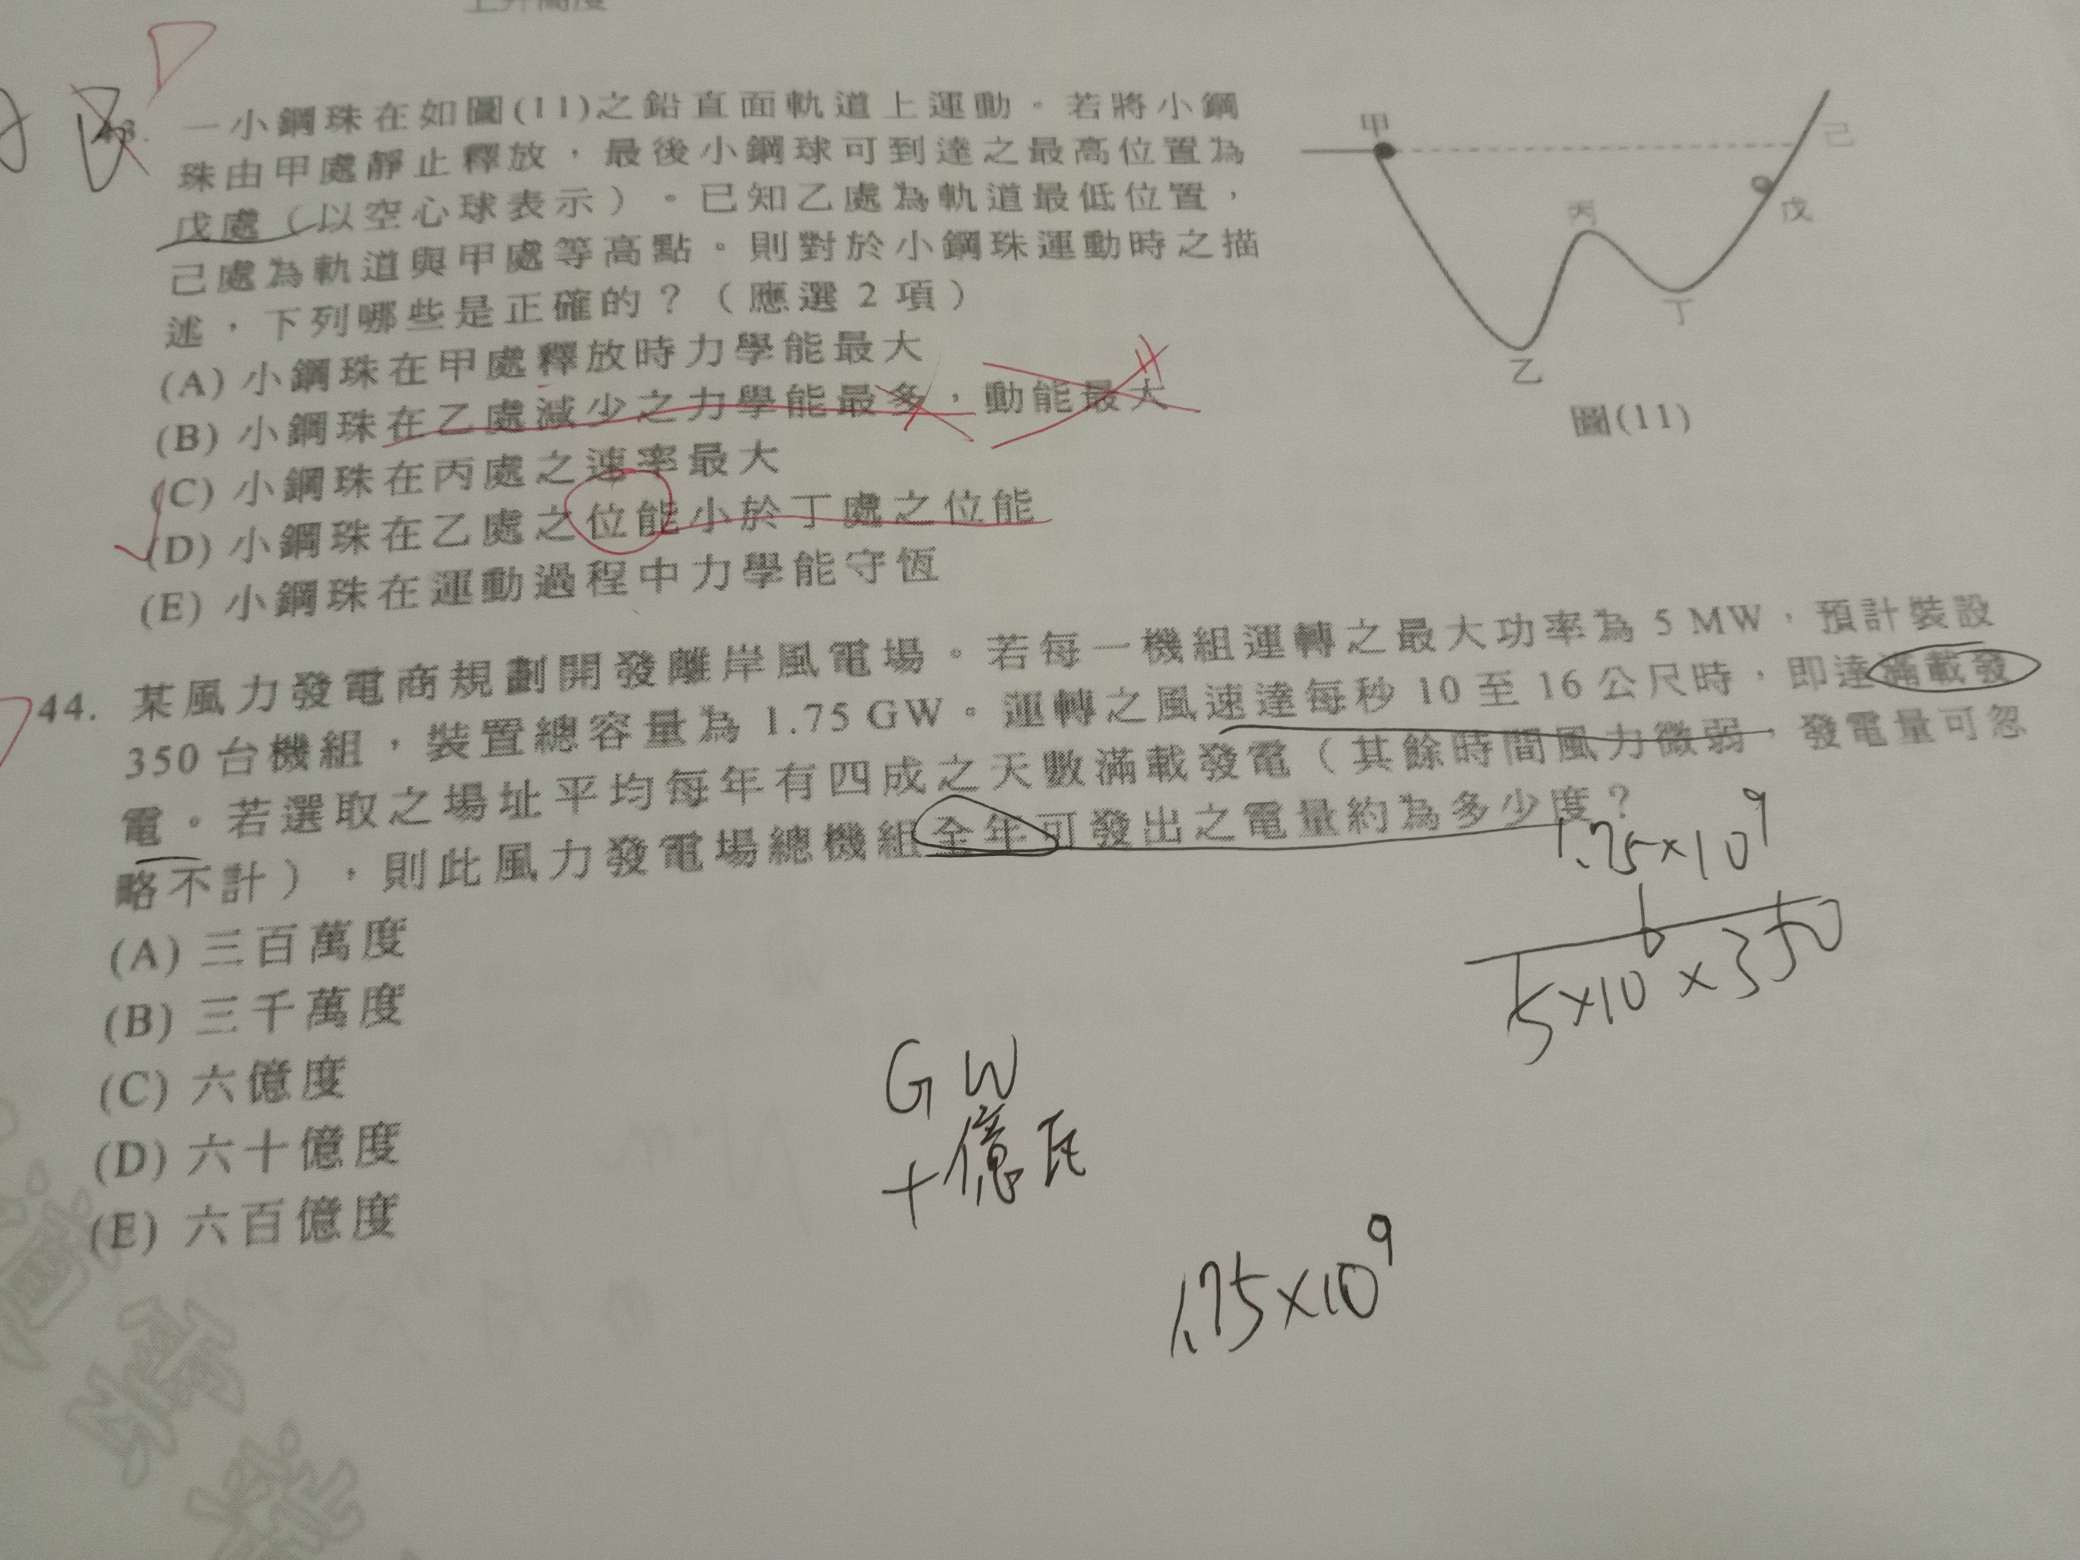 上升高度
43. 一小鋼珠在如圖(11)之鉛直面軌道上運動。若將小鋼
珠由甲處靜止釋放，最後小鋼球可到達之最高位置為
戊處（以空心球表示）。已知乙處為軌道最低位置，
己處為軌道與甲處等高點。則對於小鋼珠運動時之描
述，下列哪些是正確的？（應選2項）
(A) 小鋼珠在甲處釋放時力學能最大
(B) 小鋼珠在乙處減少之力學能最多，動能最大
(C) 小鋼珠在丙處之速率最大
(D) 小鋼珠在乙處之位能小於丁處之位能
(E) 小鋼珠在運動過程中力學能守恆
甲
己
丙
戊
丁
乙
圖(11)
44. 某風力發電商規劃開發離岸風電場。若每一機組運轉之最大功率為 5 MW，預計裝設
350 台機組，裝置總容量為 1.75 GW。運轉之風速達每秒 10 至 16 公尺時，即達滿載發
電。若選取之場址平均每年有四成之天數滿載發電（其餘時間風力微弱，發電量可忽
略不計），則此風力發電場總機組全年可發出之電量約為多少度？
(A) 三百萬度
(B) 三千萬度
(C) 六億度
(D) 六十億度
(E) 六百億度
1.75×10⁹
5×10⁶×350
GW
十億瓦
1.75×10⁹